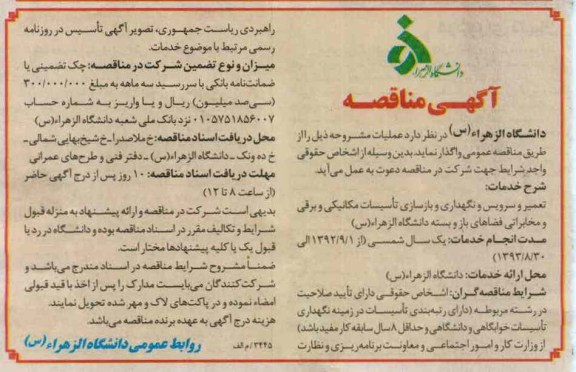 دانشگاه الزهرا
آگهی مناقصه
دانشگاه الزهراء(س) در نظر دارد عملیات مشروحه ذیل را از
طریق مناقصه عمومی واگذار نماید. بدین وسیله از اشخاص حقوقی
واجد شرایط جهت شرکت در مناقصه دعوت به عمل می‌آید.
شرح خدمات:
تعمیر و سرویس و نگهداری و بازسازی تأسیسات مکانیکی و برقی
و مخابراتی فضاهای باز و بسته دانشگاه الزهراء(س)
مدت انجام خدمات: یک سال شمسی (از ۱۳۹۲/۹/۱ الی
۱۳۹۳/۸/۳۰)
محل ارائه خدمات: دانشگاه الزهراء(س)
شرایط مناقصه‌گران: اشخاص حقوقی دارای تأیید صلاحیت
در رشته مربوطه (دارای رتبه‌بندی تأسیسات در زمینه نگهداری
تأسیسات خوابگاهی و دانشگاهی و حداقل ۸ سال سابقه کار مفید باشد)
از وزارت کار و امور اجتماعی و معاونت برنامه‌ریزی و نظارت
راهبردی ریاست جمهوری، تصویر آگهی تأسیس در روزنامه
رسمی مرتبط با موضوع خدمات.
میزان و نوع تضمین شرکت در مناقصه: چک تضمینی یا
ضمانت‌نامه بانکی با سررسید سه ماهه به مبلغ ۳۰۰/۰۰۰/۰۰۰
(سی‌صد میلیون) ریال و یا واریز به شماره حساب
۰۱۰۵۷۵۱۸۵۶۰۰۷ نزد بانک ملی شعبه دانشگاه الزهراء(س)
محل دریافت اسناد مناقصه: خ ملاصدرا ـ خ شیخ بهایی شمالی ـ
خ ده ونک ـ دانشگاه الزهراء(س) ـ دفتر فنی و طرح‌های عمرانی
مهلت دریافت اسناد مناقصه: ۱۰ روز پس از درج آگهی حاضر
(از ساعت ۸ تا ۱۲)
بدیهی است شرکت در مناقصه و ارائه پیشنهاد به منزله قبول
شرایط و تکالیف مقرر در اسناد مناقصه بوده و دانشگاه در رد یا
قبول یک یا کلیه پیشنهادها مختار است.
ضمناً مشروح شرایط مناقصه در اسناد مندرج می‌باشد و
شرکت‌کنندگان می‌بایست مدارک را پس از اخذ با قید قبولی
امضاء نموده و در پاکت‌های لاک و مهر شده تحویل نمایند.
هزینه درج آگهی به عهده برنده مناقصه می‌باشد.
۳۴۴۵/م الف
روابط عمومی دانشگاه الزهراء (س)